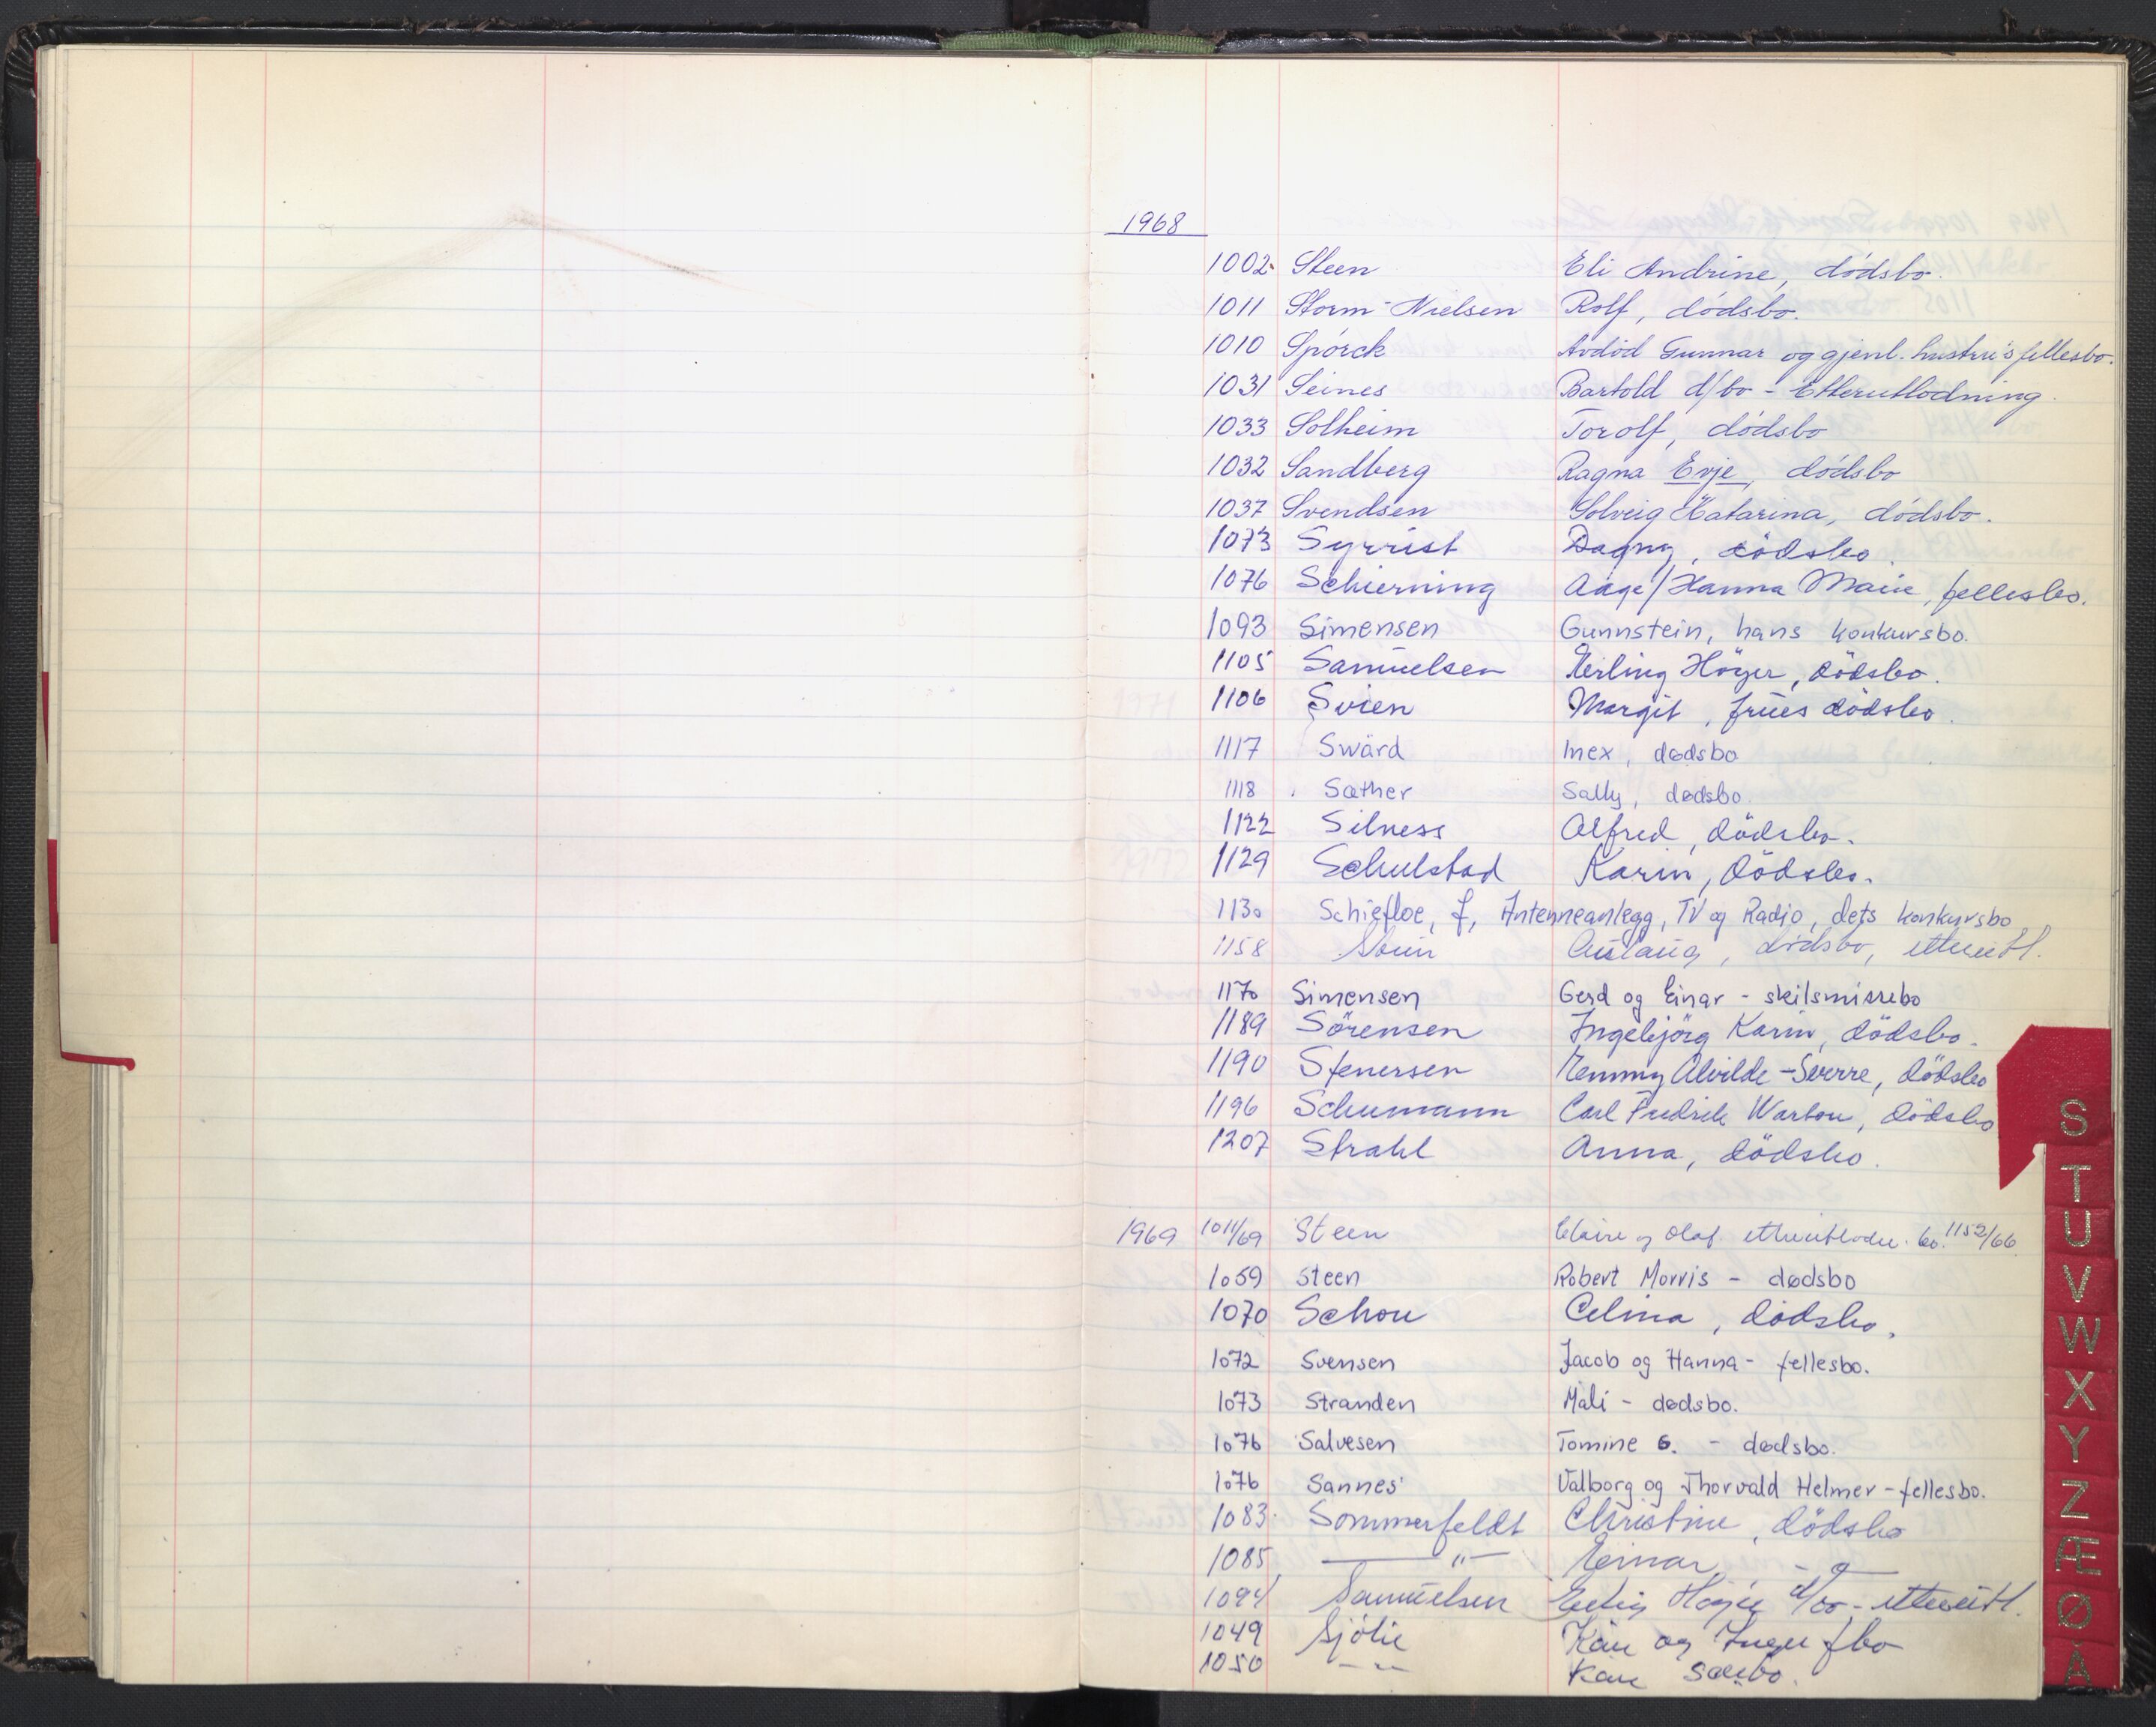 1968
1002 Steen Eli Andrine, dödsbo.
1011 Storm-Nielsen Rolf, dödsbo.
1010 Spörck Avdöd Gunnar og gjenl. hustru's fellesbo.
1031 Seines Bartold d/bo - Etterutlodning.
1033 Solheim Torolf, dödsbo
1032 Sandberg Ragna Evje, dödsbo
1037 Svendsen Solveig Katarina, dödsbo.
1073 Syrrist Dagny, dödsbo
1076 Schierning Aage/Hanna Marie, fellesbo.
1093 Simensen Gunnstein, hans konkursbo.
1105 Samuelsen Erling Höyer, dödsbo.
1106 Svien Margit, frues dödsbo.
1117 Swärd Inex, dødsbo
1118 Sæther Sally, dødsbo.
1122 Silness Alfred, dödsbo.
1129 Schulstad Karin, dödsbo.
1130 Schiefloe, f, Antenneanlegg, TV og Radio, dets konkursbo
1158 Aslaug, dödsbo, etterutl.
1170 Simensen Gerd og Einar - skilsmissebo
1189 Sörensen Ingebjörg Karin, dödsbo.
1190 Stenersen Emmy Alvilde - Sverre, dödsbo
1196 Schumann Carl Fredrik Warton, dödsbo
1207 Strahl Anna, dödsbo.
1969 1011/69 Steen Claire og Olaf etterutlodn. bo. 1152/66
1059 Steen Robert Morris - dødsbo
1070 Schou Celina, dödsbo.
1072 Svensen Jacob og Hanna - fellesbo.
1073 Stranden Mali - dødsbo.
1076 Salvesen Tomine G. - dødsbo.
1076 Sannes Valborg og Thorvald Helmer - fellesbo.
1083 Sommerfeldt Christine, dödsbo
1085 — " — Einar, - " -
1094 Samuelsen Erling Höyer d/bo - etterutl.
1049 Sjölie Kåre og Inger fbo
1050 - " - Kåre særbo.
S
T
U
V
W
X
Y
Z
Æ
Ø
Å